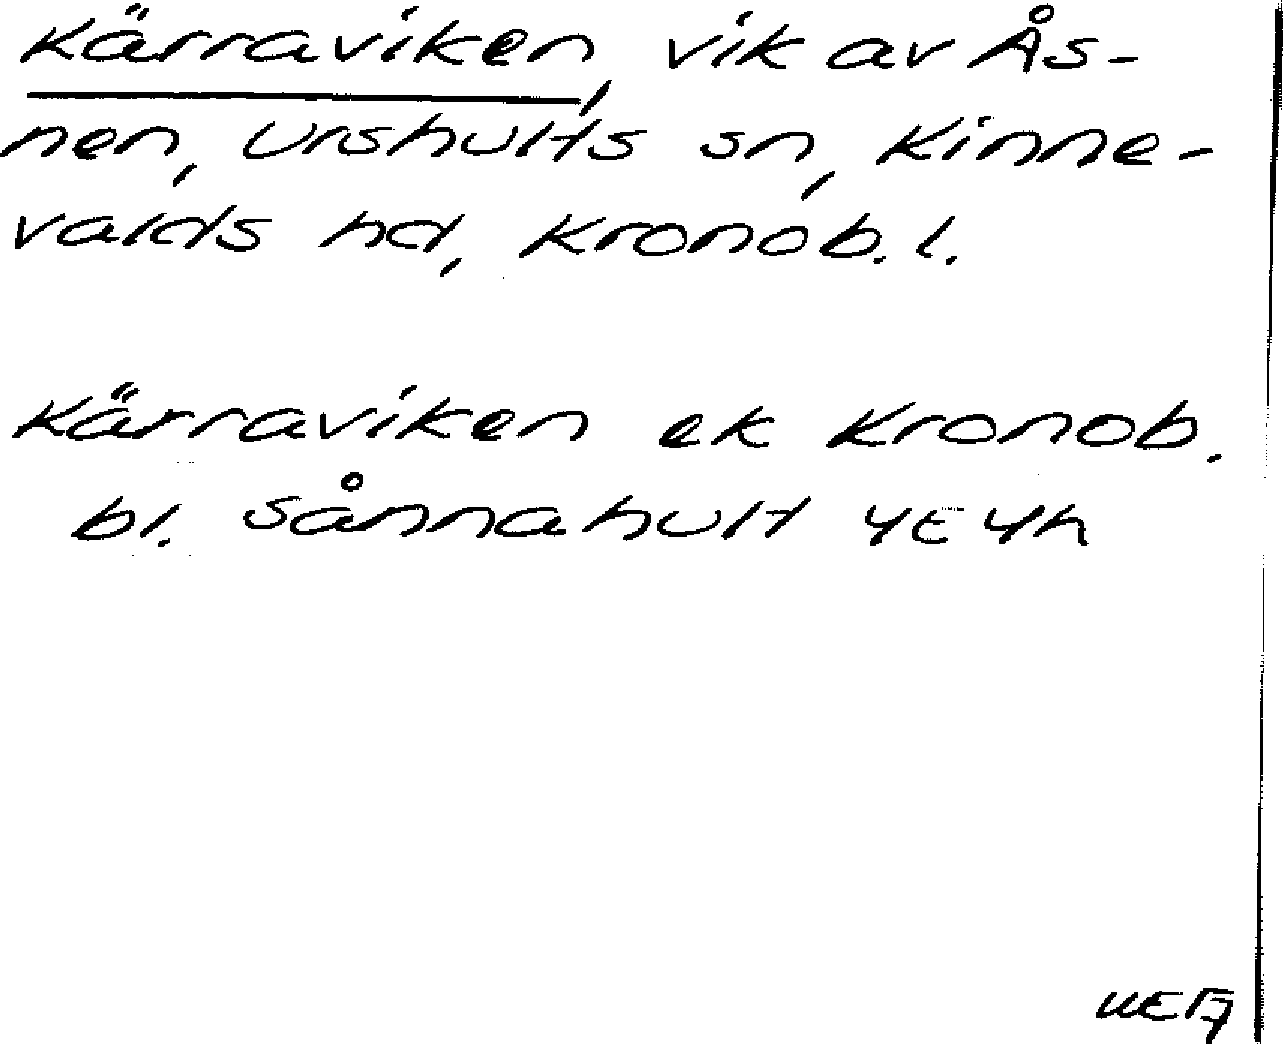 Kärraviken, vik av Ås-
nen, Urshults sn, Kinne-
valds hd, Kronob. l.
Kärraviken ek Kronob.
bl. Sånnahult 4E4h